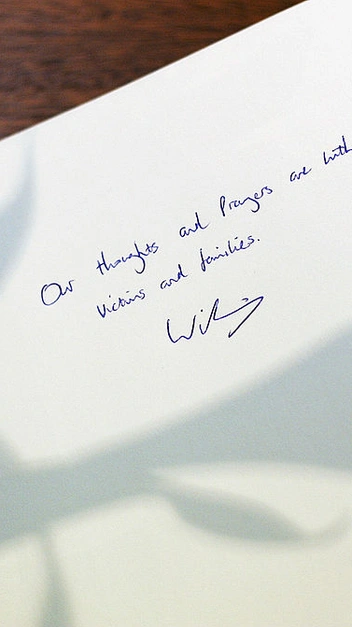 Our thoughts and Prayers are with
victims and families.